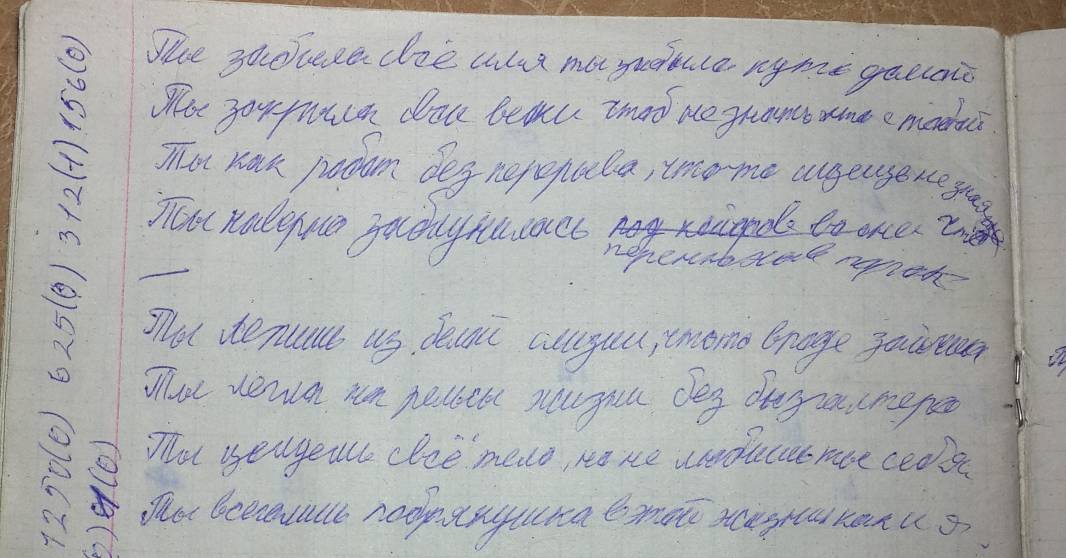 Ты забыла своё имя ты забыла путь домой
Ты закрыла свои веки чтоб не знать что с тобой
Ты как робот без перерыва, что-то ищешь не зная что
Ты наверно заблудилась
—
Ты лепишь из белой слизи, что то вроде зайчика
Ты легла на рельсы жизни без бюзгалтера
Ты целуешь своё тело, но не любишь ты себя
Ты всего лишь побрякушка в этой жизни как и я.
1250(0) 625(0) 312(1) 156(0)